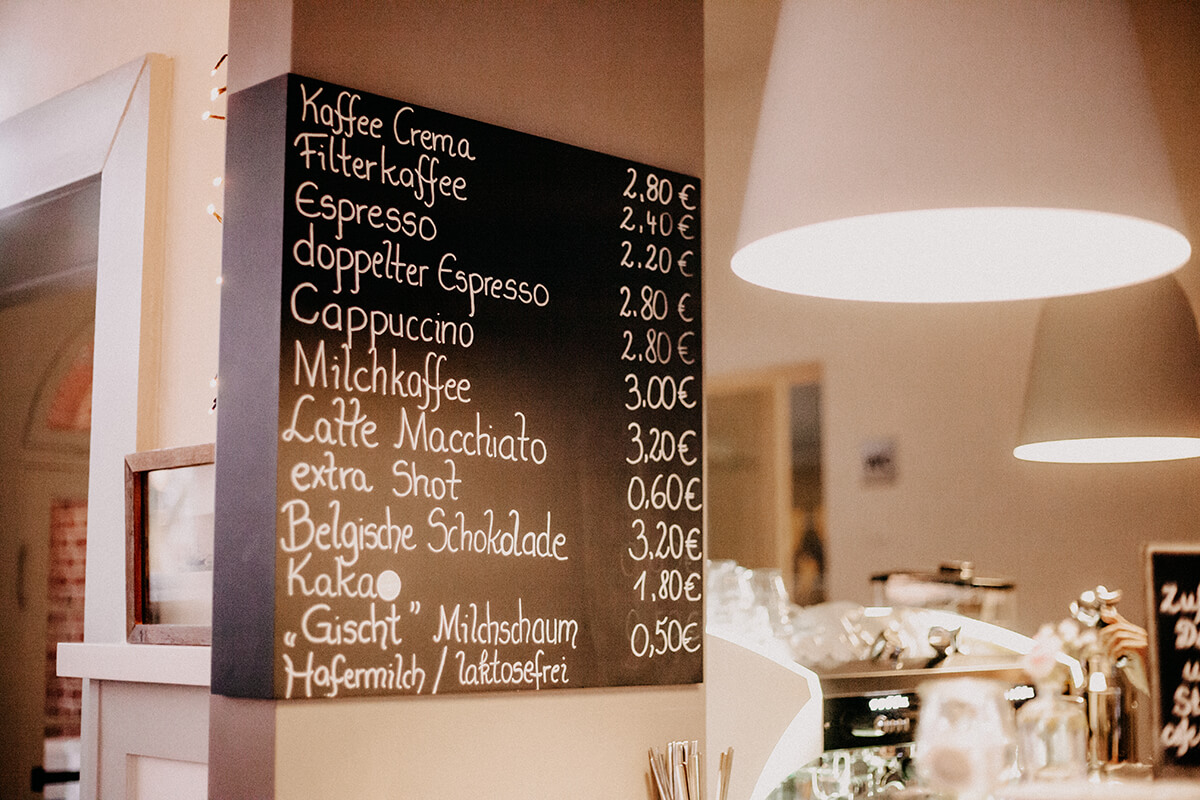 Kaffee Crema 2.80 €
Filterkaffee 2.40 €
Espresso 2.20 €
doppelter Espresso 2.80 €
Cappuccino 2.80 €
Milchkaffee 3.00 €
Latte Macchiato 3,20 €
extra Shot 0,60 €
Belgische Schokolade 3,20 €
Kakao 1,80 €
„Gischt" Milchschaum 0,50 €
Hafermilch / laktosefrei